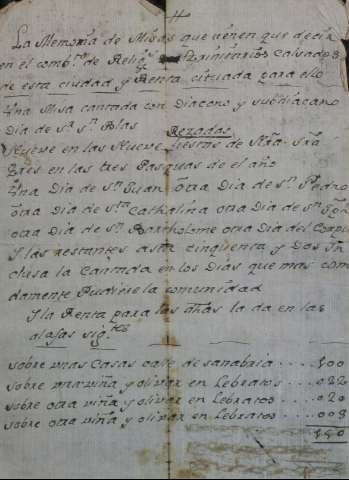 La Memoria de Misas que tienen que decir
en el combto de Religs Trinitarios Calsados
de esta ciudad y Renta cituada para ello
Una Misa cantada con Diacono y subdiacano
Dia de Sr Sn Blas Rezadas
Nueve en las Nueve fiestas de Nra Sra
Tres en las tres Pasquas de el año
Una Dia de Sn Juan, otra Dia de Sn Pedro
otra Dia de Sta Cathalina otra Dia de Sn
otra Dia de Sn Bartholome otra Dia del Corpus
Y las restantes asta cinquenta y Dos In
clusa la Cantada en los Dias que mas como
damente Pudiere la comunidad
Y la Renta para las la da en las
alajas sigtes
sobre unas Casas calle de sanabria .... 100
sobre una viña y olivar en Lebratos .... 022
sobre otra viña y olivar en Lebratos .... 020
sobre otra viña y olivar en Lebratos .... 008
150